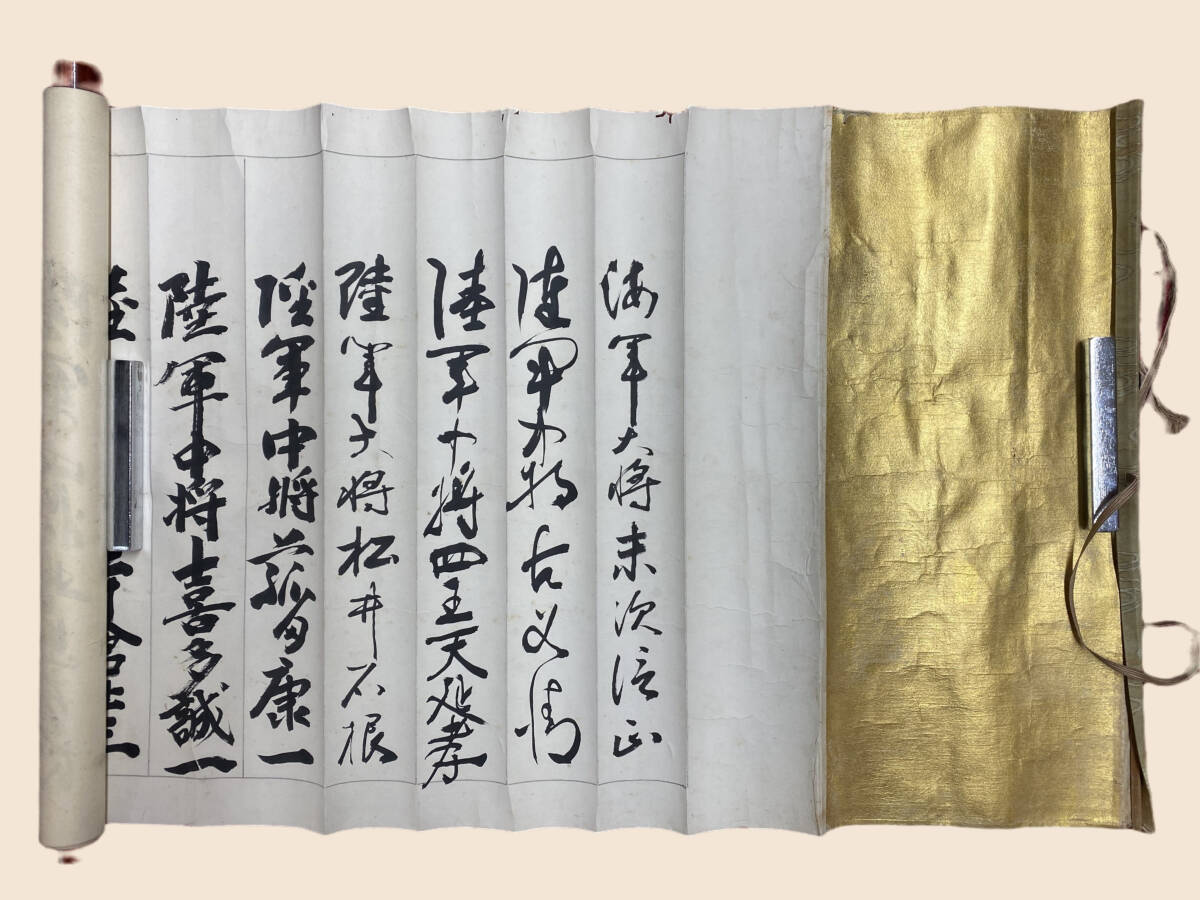 海軍大将末次信正
陸軍少将占部〆情
陸軍中将四王天延孝
陸軍大将松井石根
陸軍中将菰田康一
陸軍中将喜多誠一
陸